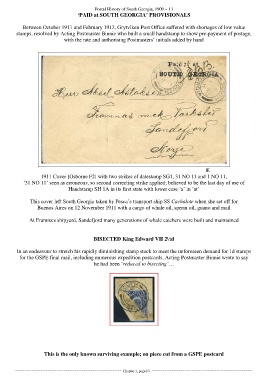 Postal History of South Georgia, 1909 – 13
'PAID at SOUTH GEORGIA' PROVISIONALS
Between October 1911 and February 1912, Grytviken Post Office suffered with shortages of low value
stamps, resolved by Acting Postmaster Binnie who built a small handstamp to show pre-payment of postage,
with the rate and authorising Postmasters' initials added by hand
Paid at
SOUTH GEORGIA
Herr Aksel Aslaksen
Framnæs mek. Værksted
Sandefjord
Norge
1911 Cover [Osborne P2] with two strikes of datestamp SG1, 31 NO 11 and 1 NO 11,
'31 NO 11' seen as erroneous, so second correcting strike applied; believed to be the last day of use of
Handstamp SH 1A in its first state with lower case 'a' in 'at'
This cover left South Georgia taken by Pesca's transport ship SS Coronda when she set off for
Buenos Aires on 12 November 1911 with a cargo of whale oil, sperm oil, guano and mail
At Framnæs shipyard, Sandefjord many generations of whale catchers were built and maintained
BISECTED King Edward VII 2½d
In an endeavour to stretch his rapidly diminishing stamp stock to meet the unforeseen demand for 1d stamps
for the GSPE final mail, including numerous expedition postcards, Acting Postmaster Binnie wrote to say
he had been 'reduced to bisecting' …
This is the only known surviving example; on piece cut from a GSPE postcard
Chapter 3, page